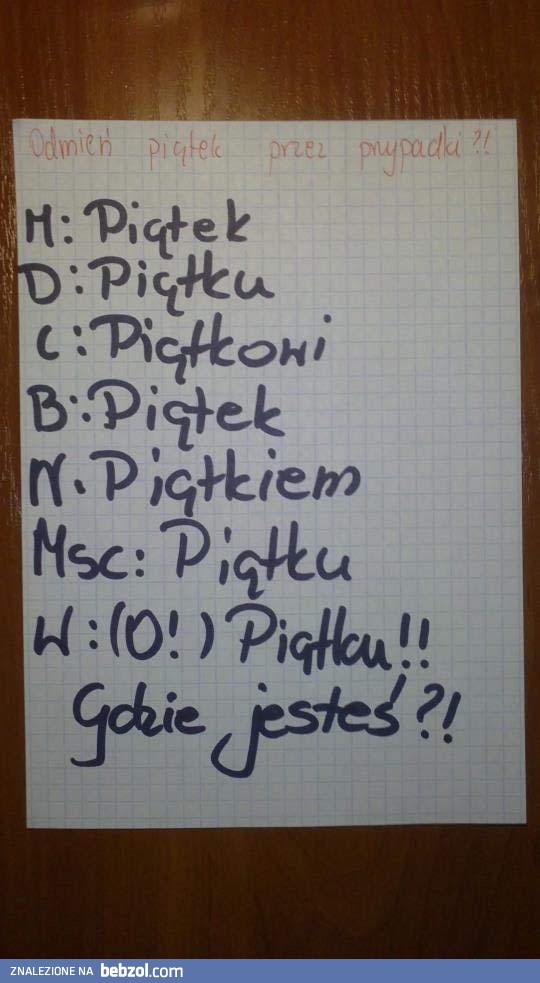 Odmień piątek przez przypadki?!
M: Piątek
D: Piątku
C: Piątkowi
B: Piątek
N. Piątkiem
Msc: Piątku
W: (O!) Piątku!!
Gdzie jesteś?!
ZNALEZIONE NA bebzol.com